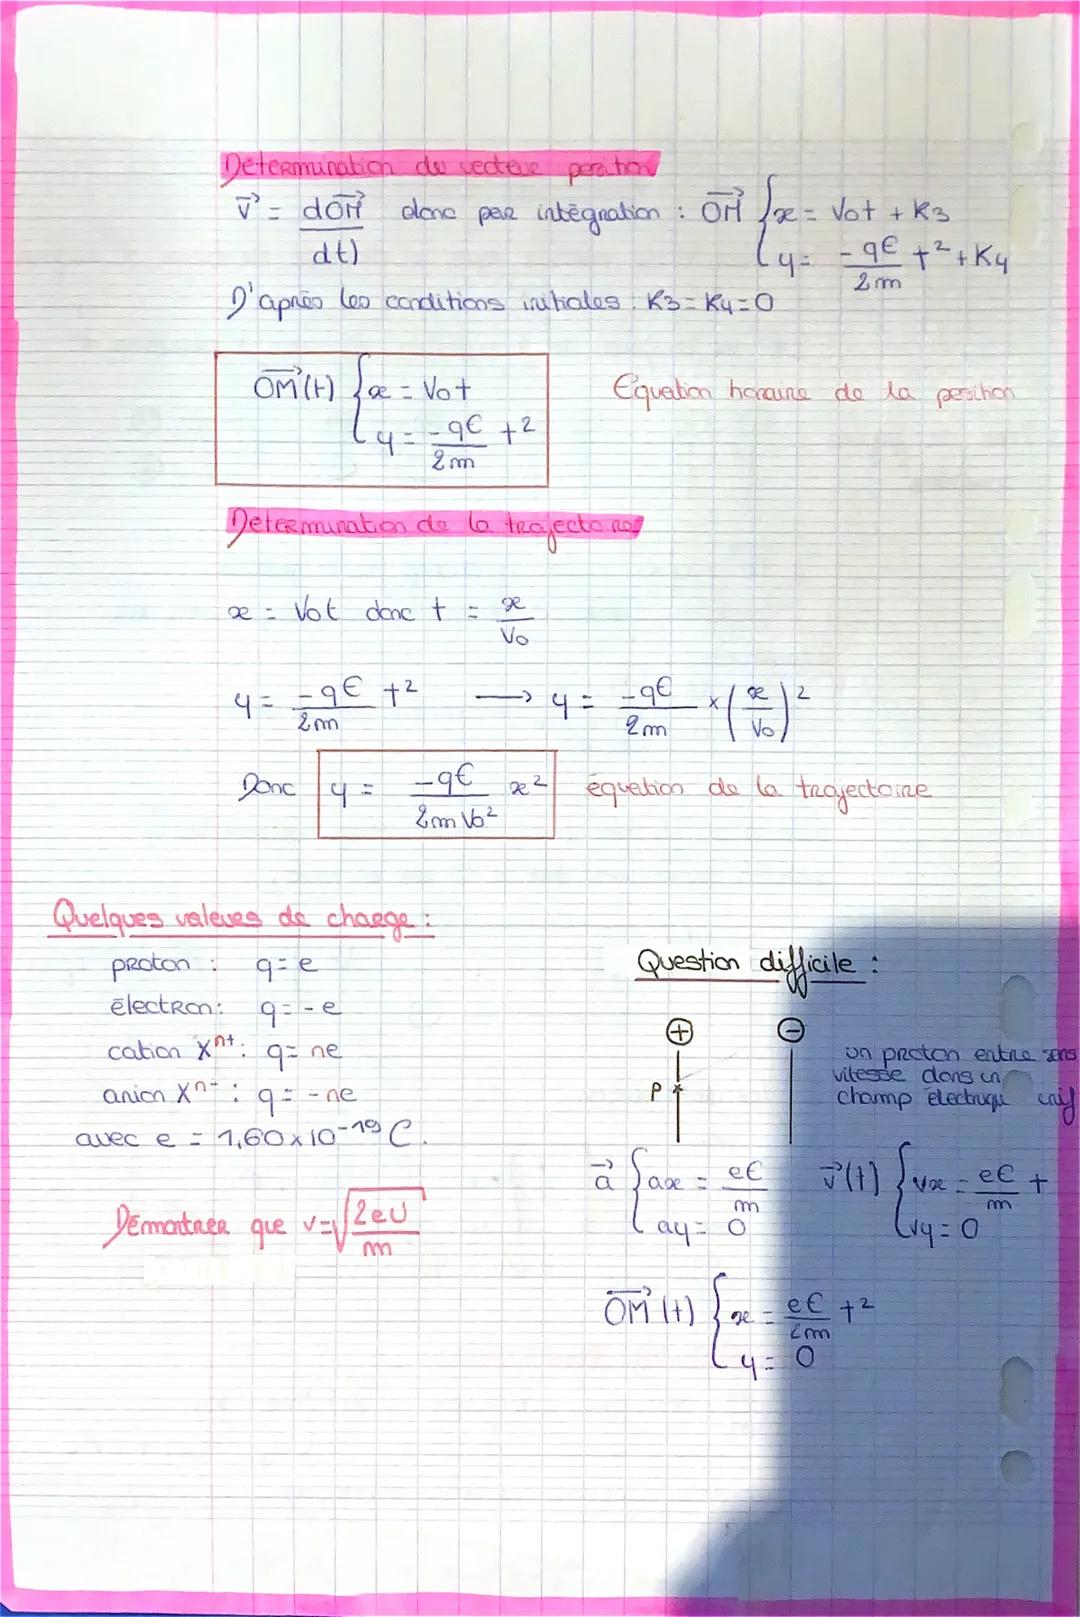 Détermination du vecteur position
v⃗ = dOM⃗/dt) donc par intégration : OM⃗ { x = V0t + K3
y = -qE/2m t² + K4
D'après les conditions initiales : K3 = K4 = 0
OM⃗(t) { x = V0t
y = -qE/2m t²
Equation horaire de la position
Détermination de la trajectoire
x = V0t donc t = x/V0
y = -qE/2m t² → y = -qE/2m × (x/V0)²
Donc y = -qE/2mV0² x² équation de la trajectoire
Quelques valeurs de charge :
proton : q = e
électron : q = -e
cation Xⁿ⁺ : q = ne
anion Xⁿ⁻ : q = -ne
avec e = 1,60 × 10⁻¹⁹ C.
Démontrer que v = √(2eU/m)
Question difficile :
+ -
P
un proton entre sans
vitesse dans un
champ électrique unif
a⃗ { ax = eE/m
ay = 0
v⃗(t) { vx = eE/m t
vy = 0
OM⃗(t) { x = eE/2m t²
y = 0